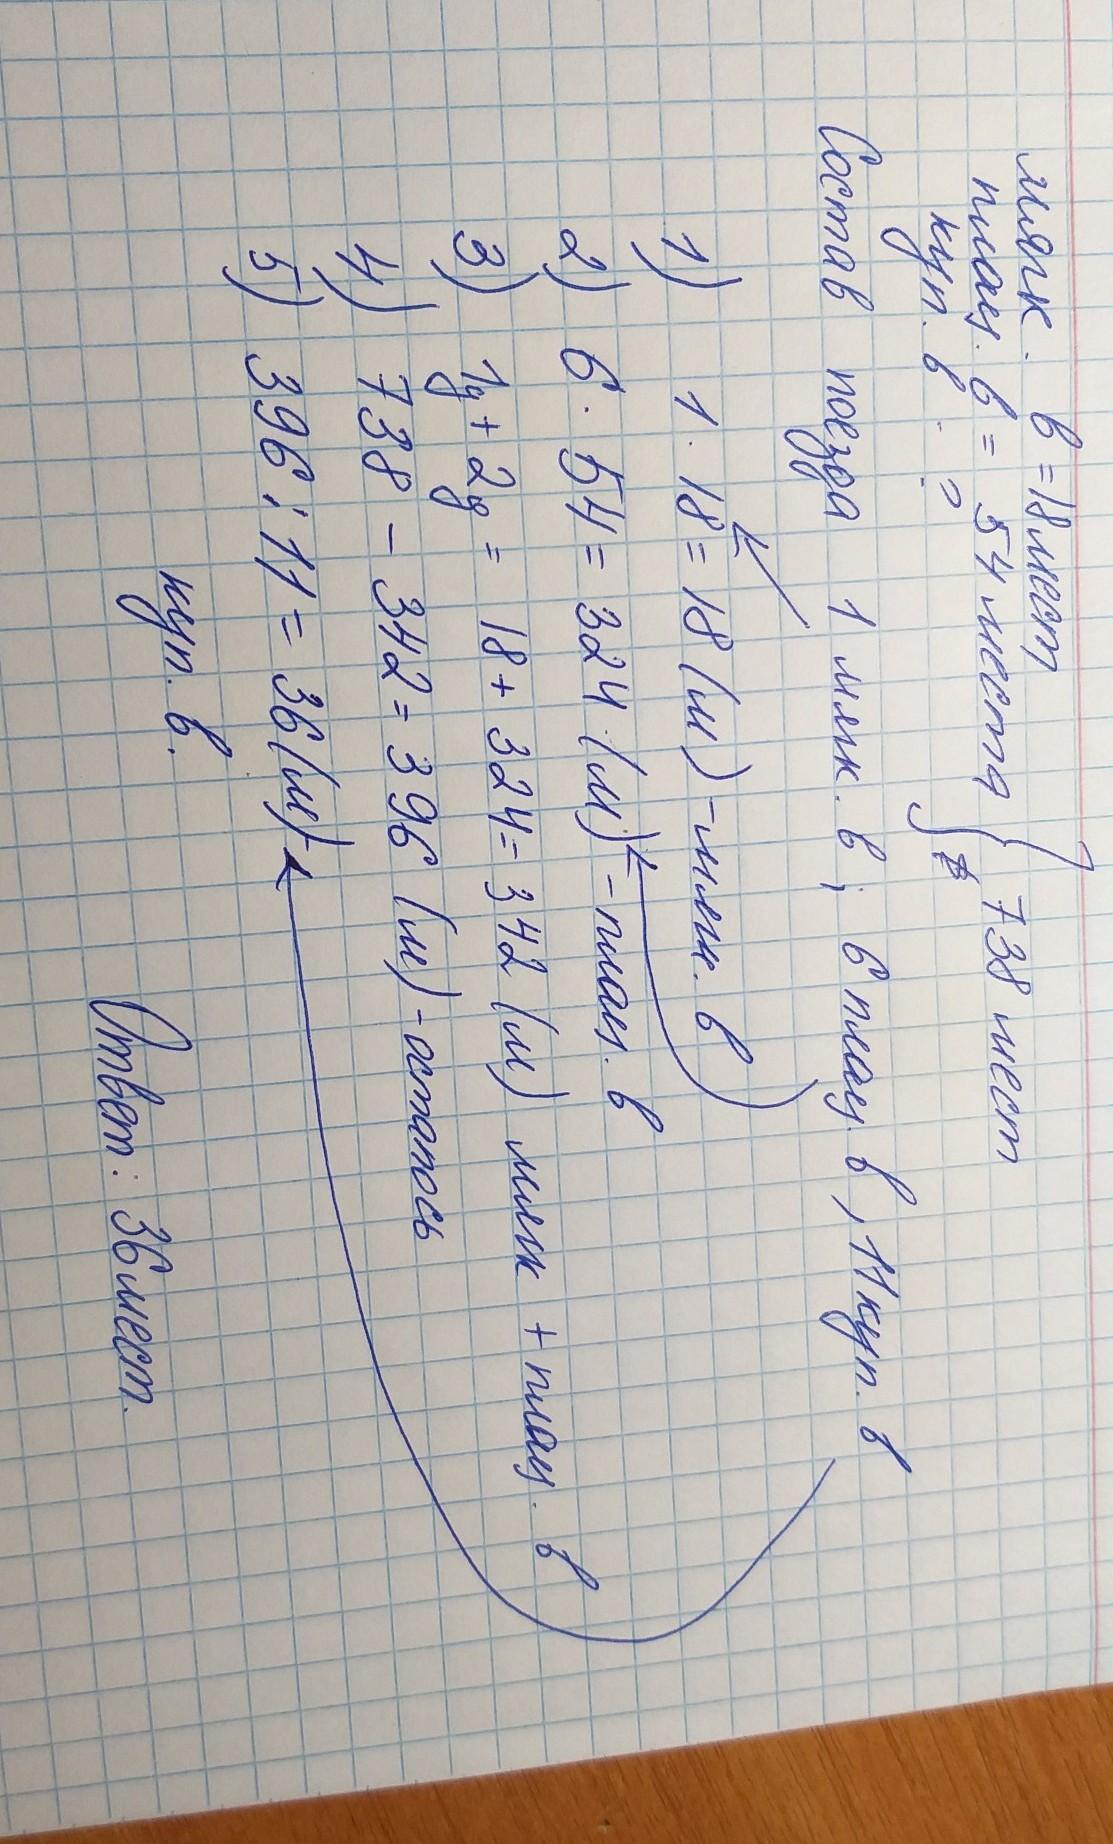 мягк. в = 18 мест
плац. в = 54 места } 738 мест
куп. в - ?
Состав поезда 1 мяк. в, 6 плац. в, 11 куп. в
1) 1 · 18 = 18 (м) - мягк. в
2) 6 · 54 = 324 (м) - плац. в
3) 1g + 2g = 18 + 324 = 342 (м) мягк + плац. в
4) 738 - 342 = 396 (м) - осталось
5) 396 : 11 = 36 (м)
куп. в.
Ответ: 36 мест.